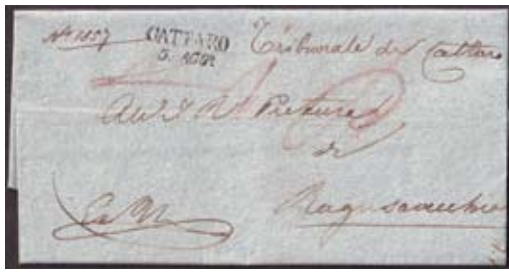 No 1857 CATTARO Tribunale di Cattaro
5. AGOS
All' I. R. Pretura
di
Ragusavecchia